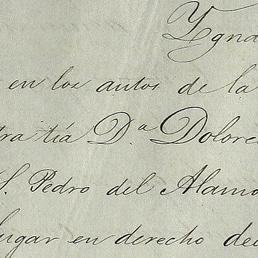 Ygna
en los autos de la
tra tía D.ª Dolore
S. Pedro del Alamo
lugar en derecho de